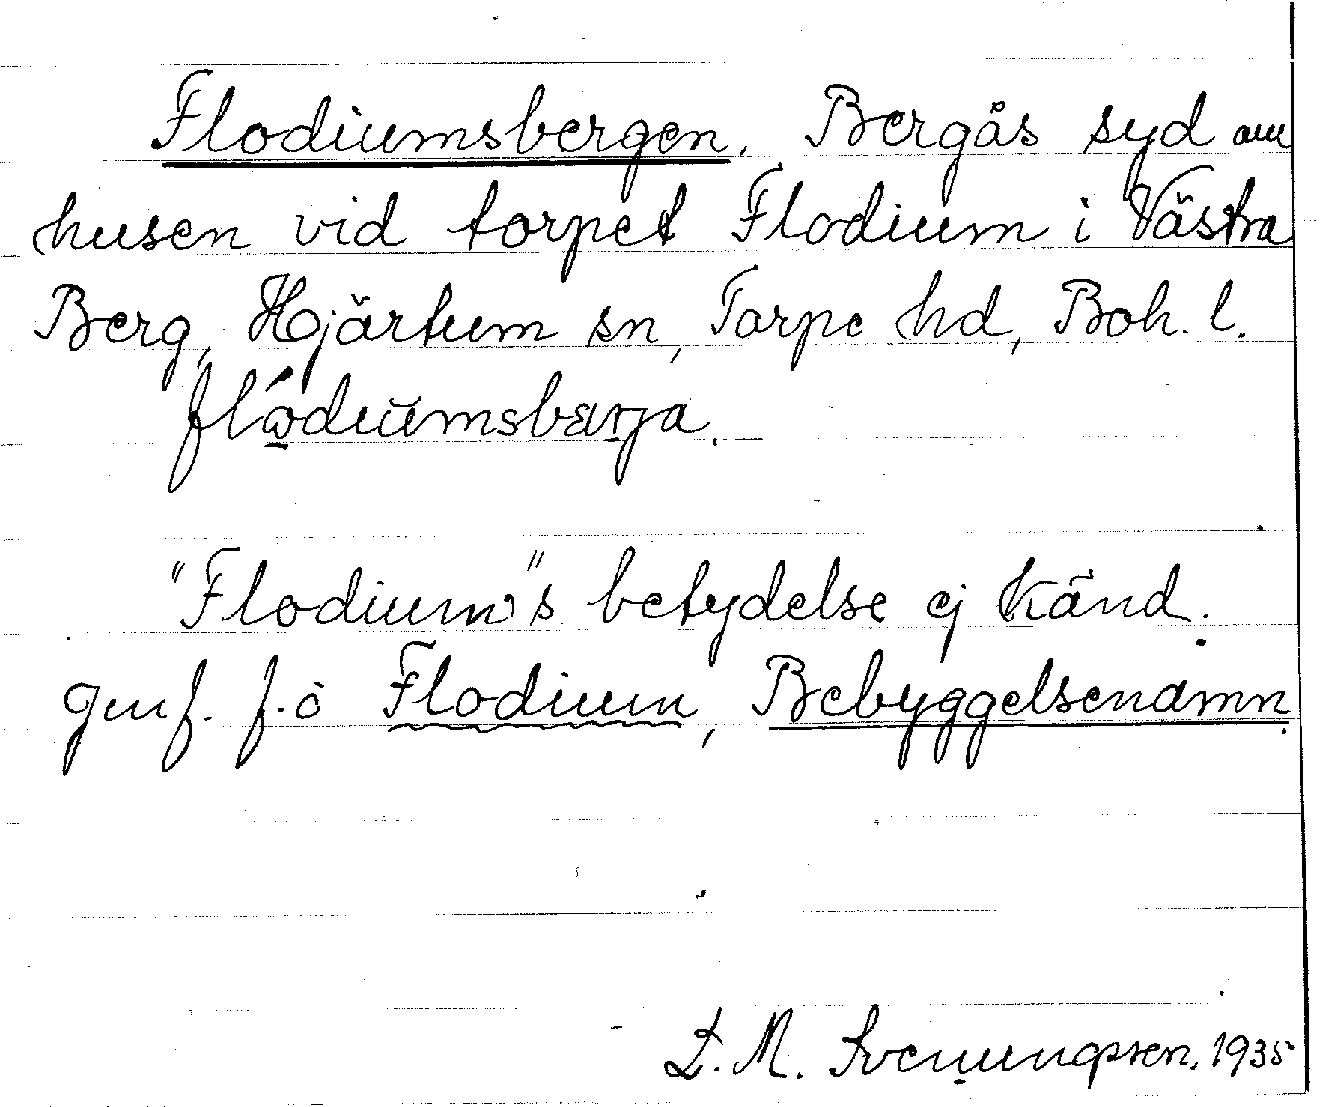 Flodiumsbergen. Bergås syd om
husen vid torpet Flodium i Västra
Berg, Hjärtum sn, Torpe hd, Boh. l.
flódiŭmsbærja.
"Flodium"s betydelse ej känd.
Jmf. f.ö Flodium, Bebyggelsenamn.
D. M. Svenungsen. 1935